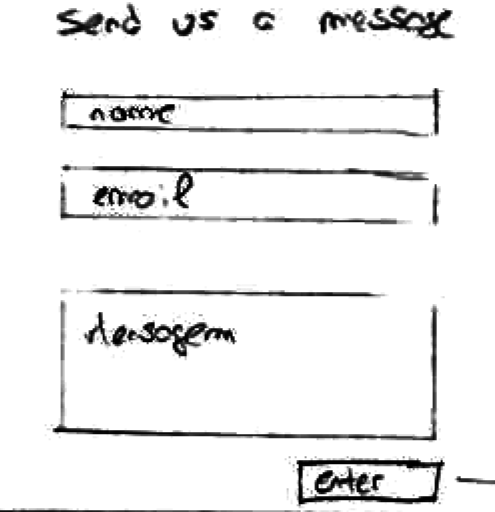 Send us a message
name
email
Mensagem
enter